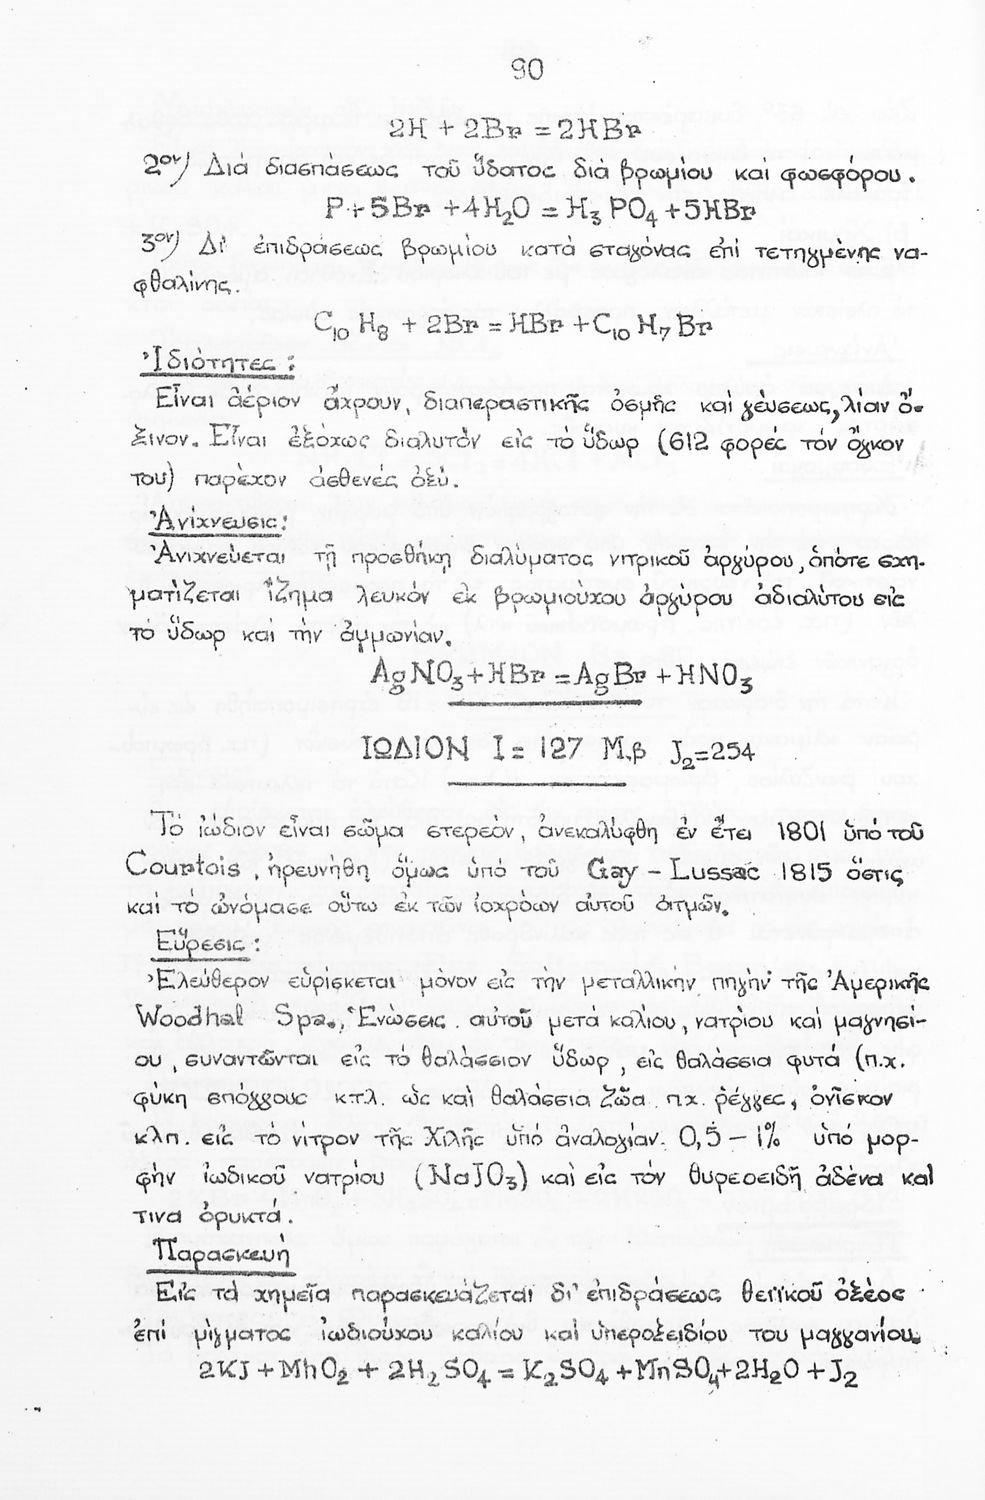 90
2H + 2Br = 2HBr
2ον) Διά διασπάσεως τοῦ ὕδατος διά βρωμίου καί φωσφόρου.
P + 5Br + 4H₂O = H₃ PO₄ + 5HBr
3ον) Δι' ἐπιδράσεως βρωμίου κατά σταγόνας ἐπί τετηγμένης να-
φθαλίνης.
C₁₀ H₈ + 2Br = HBr + C₁₀ H₇ Br
Ἰδιότητες :
Εἶναι ἀέριον ἄχρουν, διαπεραστικῆς ὀσμῆς καί γεύσεως, λίαν ὄ-
ξινον. Εἶναι ἐξόχως διαλυτόν εἰς τό ὕδωρ (612 φορές τόν ὄγκον
του) παρέχον ἀσθενές ὀξύ.
Ἀνίχνευσις :
Ἀνιχνεύεται τῇ προσθήκῃ διαλύματος νιτρικοῦ ἀργύρου, ὁπότε σχη-
ματίζεται ἵζημα λευκόν ἐκ βρωμιούχου ἀργύρου ἀδιαλύτου εἰς
τό ὕδωρ καί τήν ἀμμωνίαν.
AgNO₃ + HBr = AgBr + HNO₃
ΙΩΔΙΟΝ I = 127 Μ.β J₂=254
Τό ἰώδιον εἶναι σῶμα στερεόν, ἀνεκαλύφθη ἐν ἔτει 1801 ὑπό τοῦ
Courtois, ἠρευνήθη ὅμως ὑπό τοῦ Gay – Lussac 1815 ὅστις
καί τό ὠνόμασε οὕτω ἐκ τῶν ἰοχρόων αὐτοῦ ἀτμῶν.
Εὕρεσις :
Ἐλεύθερον εὑρίσκεται μόνον εἰς τήν μεταλλικήν πηγήν τῆς Ἀμερικῆς
Woodhal Spa., Ἑνώσεις αὐτοῦ μετά καλίου, νατρίου καί μαγνησί-
ου, συναντῶνται εἰς τό θαλάσσιον ὕδωρ, εἰς θαλάσσια φυτά (π.χ.
φύκη σπόγγους κ.τ.λ. ὡς καί θαλάσσια ζῶα π.χ. ρέγγες, ὀνίσκον
κλπ. εἰς τό νίτρον τῆς Χιλῆς ὑπό ἀναλογίαν 0,5 – 1% ὑπό μορ-
φήν ἰωδικοῦ νατρίου (NaJO₃) καί εἰς τόν θυρεοειδῆ ἀδένα καί
τινα ὀρυκτά.
Παρασκευή
Εἰς τά χημεῖα παρασκευάζεται δι' ἐπιδράσεως θειϊκοῦ ὀξέος
ἐπί μίγματος ἰωδιούχου καλίου καί ὑπεροξειδίου του μαγγανίου.
2KJ + MhO₂ + 2H₂SO₄ = K₂SO₄ + MnSO₄+2H₂O + J₂